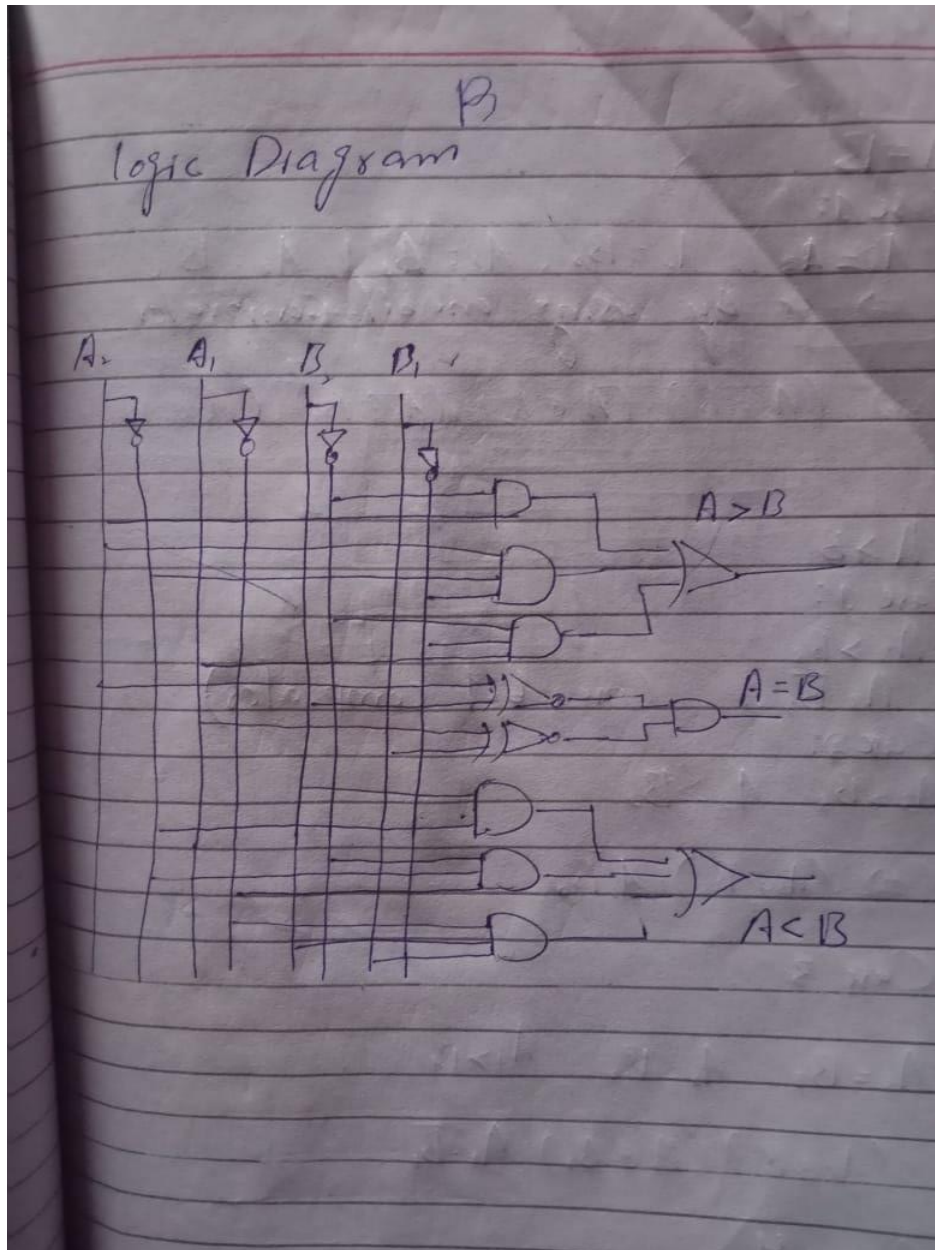 B
logic Diagram
A₂ A₁ B₂ B₁
A > B
A = B
A < B